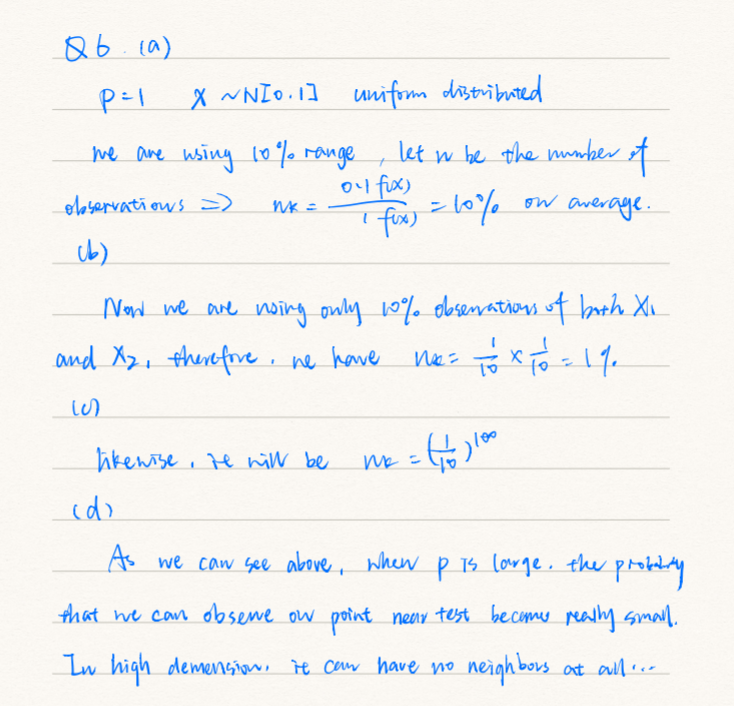 Q6. (a)
P=1 X ~N[0.1] uniform distributed
we are using 10% range, let n be the number of
observations => nk = 0.1 f(x) / 1 f(x) = 10% on average.
(b)
Now we are using only 10% observations of both X1
and X2, therefore. we have nk = 1/10 × 1/10 = 1%.
(c)
likewise, it will be nk = (1/10)^100
(d)
As we can see above, when p is large. the probability
that we can observe our point near test become really small.
In high demension. it can have no neighbors at all...